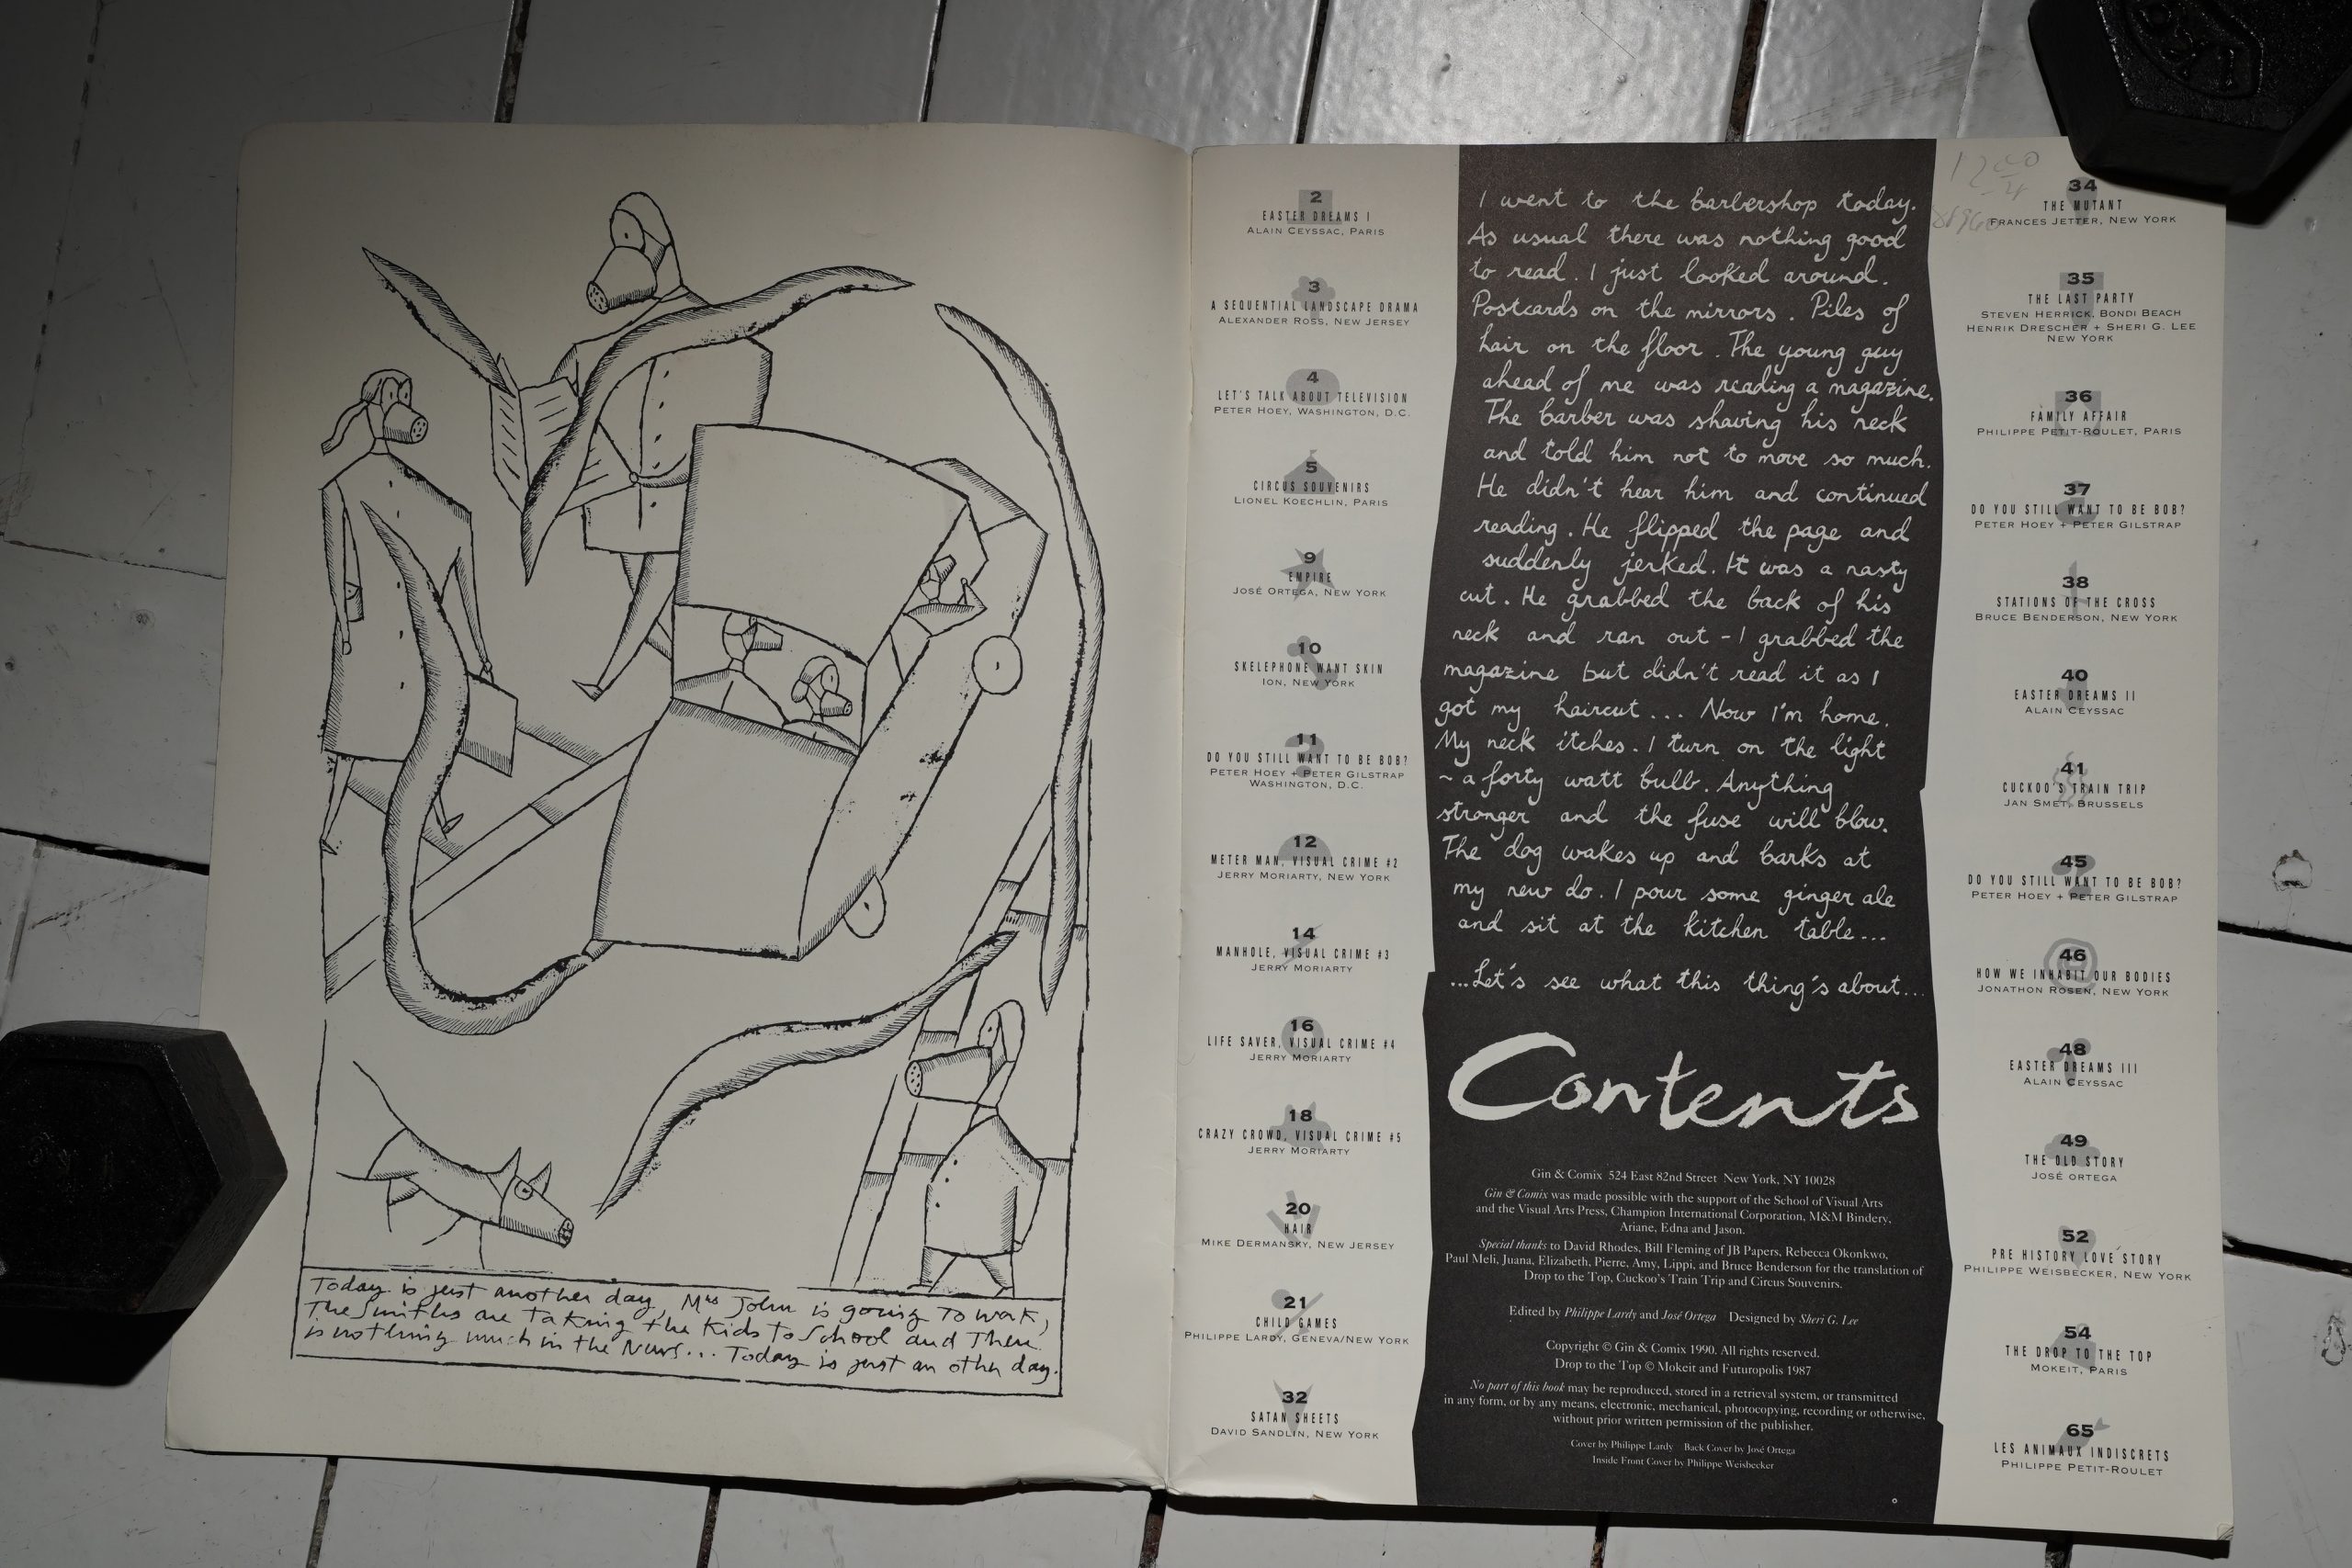 Today is just another day, Mrs John is going to work,
The Smiths are taking the kids to School and There
is nothing much in the News... Today is just an other day.
2
EASTER DREAMS I
ALAIN CEYSSAC, PARIS
3
A SEQUENTIAL LANDSCAPE DRAMA
ALEXANDER ROSS, NEW JERSEY
4
LET'S TALK ABOUT TELEVISION
PETER HOEY, WASHINGTON, D.C.
5
CIRCUS SOUVENIRS
LIONEL KOECHLIN, PARIS
9
EMPIRE
JOSÉ ORTEGA, NEW YORK
10
SKELEPHONE WANT SKIN
ION, NEW YORK
11
DO YOU STILL WANT TO BE BOB?
PETER HOEY + PETER GILSTRAP
WASHINGTON, D.C.
12
METER MAN, VISUAL CRIME #2
JERRY MORIARTY, NEW YORK
14
MANHOLE, VISUAL CRIME #3
JERRY MORIARTY
16
LIFE SAVER, VISUAL CRIME #4
JERRY MORIARTY
18
CRAZY CROWD, VISUAL CRIME #5
JERRY MORIARTY
20
HAIR
MIKE DERMANSKY, NEW JERSEY
21
CHILD GAMES
PHILIPPE LARDY, GENEVA/NEW YORK
32
SATAN SHEETS
DAVID SANDLIN, NEW YORK
I went to the barbershop today.
As usual there was nothing good
to read. I just looked around.
Postcards on the mirrors. Piles of
hair on the floor. The young guy
ahead of me was reading a magazine.
The barber was shaving his neck
and told him not to move so much.
He didn't hear him and continued
reading. He flipped the page and
suddenly jerked. It was a nasty
cut. He grabbed the back of his
neck and ran out - I grabbed the
magazine but didn't read it as I
got my haircut... Now I'm home.
My neck itches. I turn on the light
~ a forty watt bulb. Anything
stronger and the fuse will blow.
The dog wakes up and barks at
my new do. I pour some ginger ale
and sit at the kitchen table...
...Let's see what this thing's about...
Contents
Gin & Comix 524 East 82nd Street New York, NY 10028
Gin & Comix was made possible with the support of the School of Visual Arts
and the Visual Arts Press, Champion International Corporation, M&M Bindery,
Ariane, Edna and Jason.
Special thanks to David Rhodes, Bill Fleming of JB Papers, Rebecca Okonkwo,
Paul Meli, Juana, Elizabeth, Pierre, Amy, Lippi, and Bruce Benderson for the translation of
Drop to the Top, Cuckoo's Train Trip and Circus Souvenirs.
Edited by Philippe Lardy and José Ortega Designed by Sheri G. Lee
Copyright © Gin & Comix 1990. All rights reserved.
Drop to the Top © Mokeit and Futuropolis 1987
No part of this book may be reproduced, stored in a retrieval system, or transmitted
in any form, or by any means, electronic, mechanical, photocopying, recording or otherwise,
without prior written permission of the publisher.
Cover by Philippe Lardy Back Cover by José Ortega
Inside Front Cover by Philippe Weisbecker
34
THE MUTANT
FRANCES JETTER, NEW YORK
35
THE LAST PARTY
STEVEN HERRICK, BONDI BEACH
HENRIK DRESCHER + SHERI G. LEE
NEW YORK
36
FAMILY AFFAIR
PHILIPPE PETIT-ROULET, PARIS
37
DO YOU STILL WANT TO BE BOB?
PETER HOEY + PETER GILSTRAP
38
STATIONS OF THE CROSS
BRUCE BENDERSON, NEW YORK
40
EASTER DREAMS II
ALAIN CEYSSAC
41
CUCKOO'S TRAIN TRIP
JAN SMET, BRUSSELS
45
DO YOU STILL WANT TO BE BOB?
PETER HOEY + PETER GILSTRAP
46
HOW WE INHABIT OUR BODIES
JONATHON ROSEN, NEW YORK
48
EASTER DREAMS III
ALAIN CEYSSAC
49
THE OLD STORY
JOSÉ ORTEGA
52
PRE HISTORY LOVE STORY
PHILIPPE WEISBECKER, NEW YORK
54
THE DROP TO THE TOP
MOKEIT, PARIS
65
LES ANIMAUX INDISCRETS
PHILIPPE PETIT-ROULET